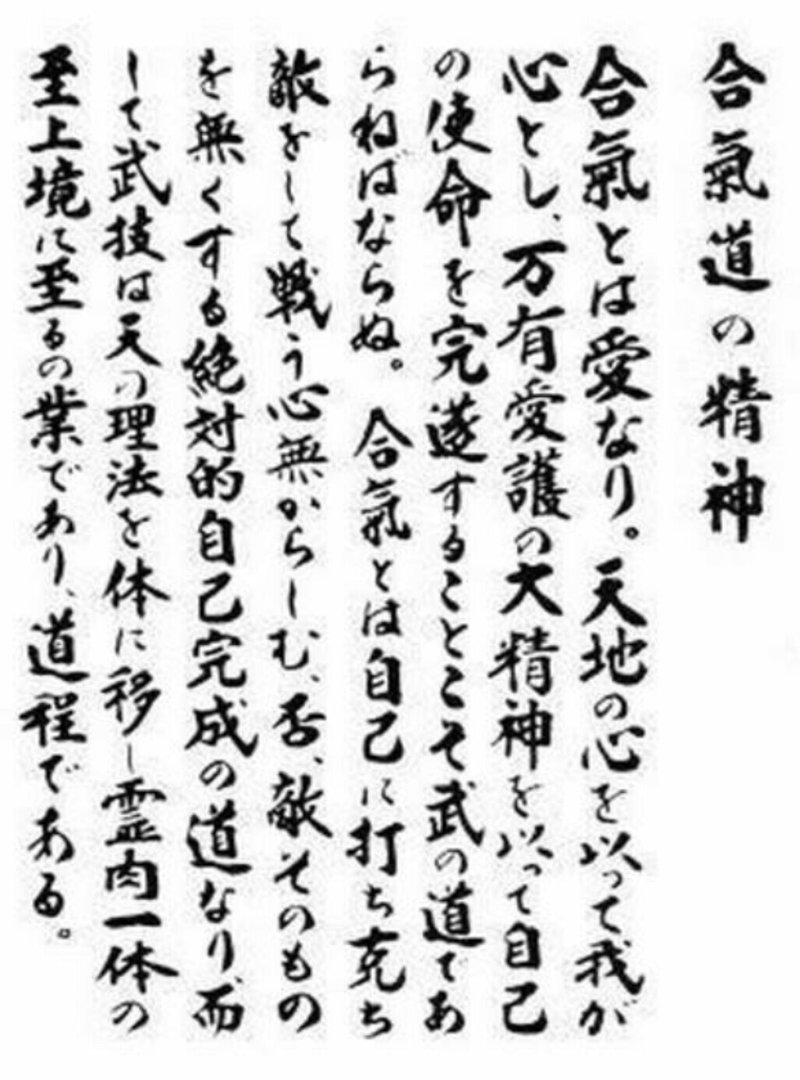 合氣道の精神
合氣とは愛なり。天地の心を以って我が
心とし、万有愛護の大精神を以って自己
の使命を完遂することこそ武の道であ
らねばならぬ。合氣とは自己に打ち克ち
敵をして戦う心無からしむ、否、敵そのもの
を無くする絶対的自己完成の道なり、而
して武技は天の理法を体に移し霊肉一体の
至上境に至るの業であり、道程である。